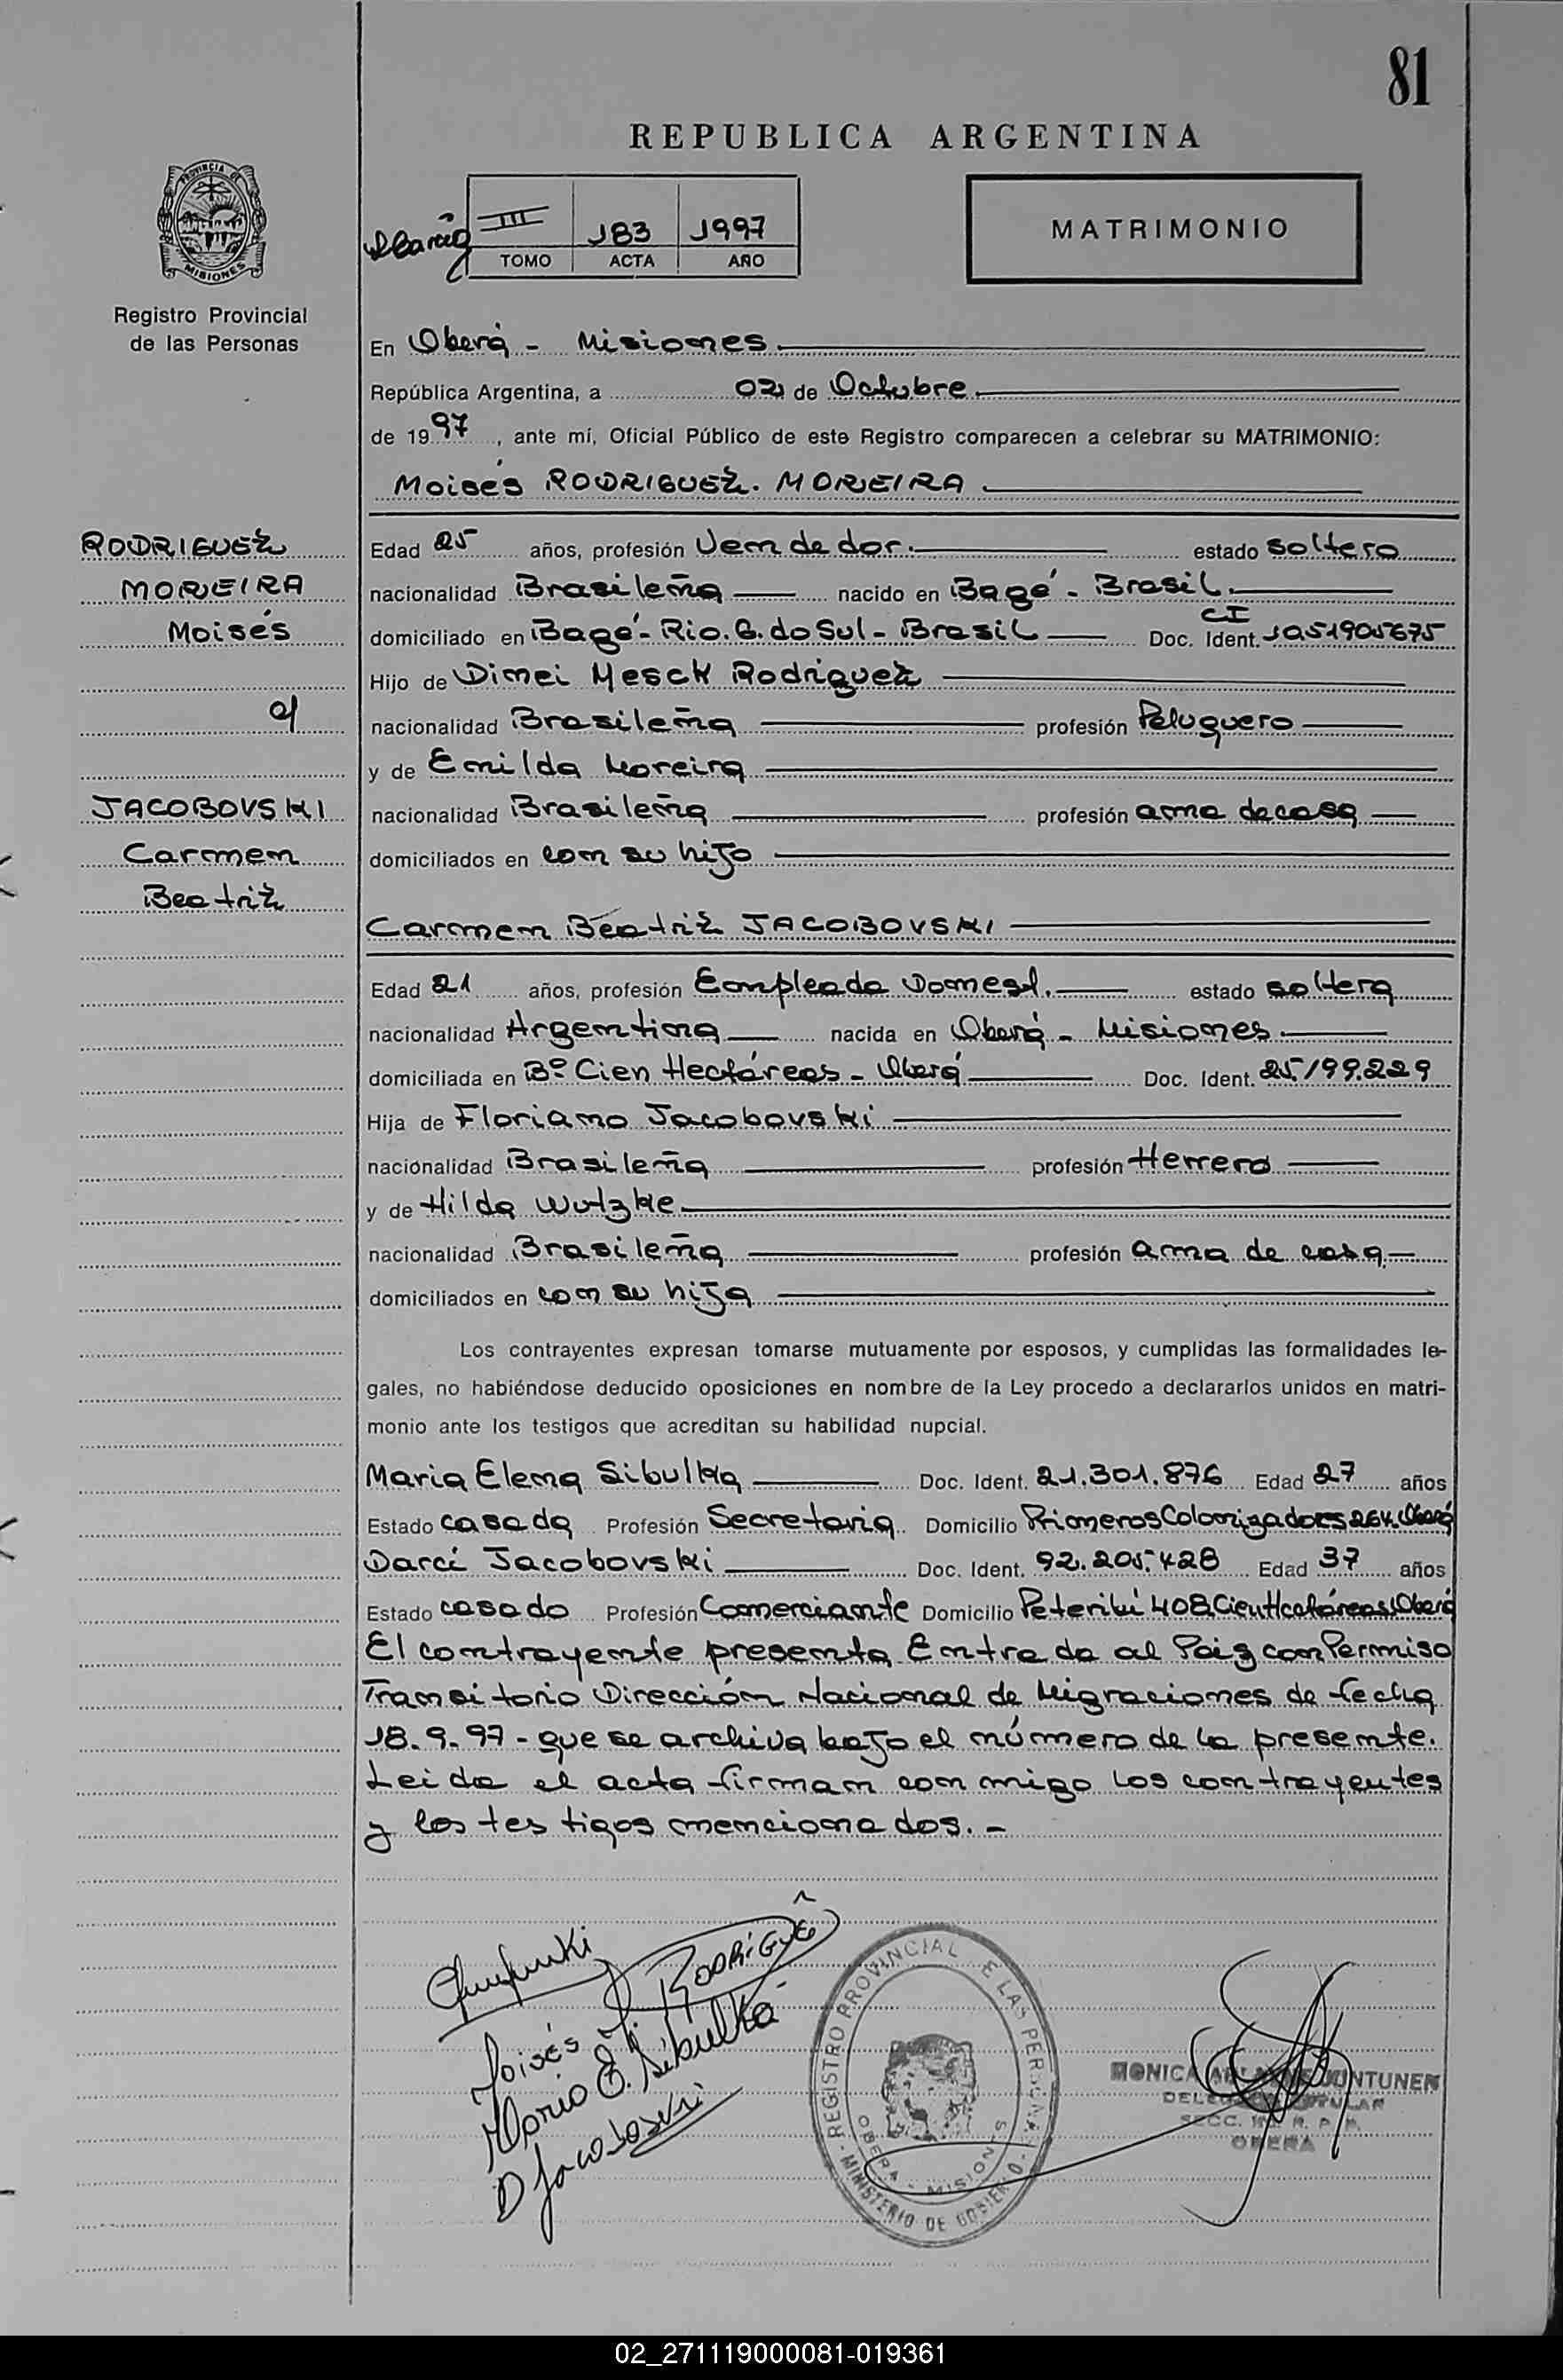 81
REPUBLICA ARGENTINA
PROVINCIA DE
MISIONES
Registro Provincial
de las Personas
Oberá III 183 1997
TOMO ACTA AÑO
MATRIMONIO
En Oberá - Misiones
República Argentina, a 02 de Octubre
de 1997, ante mí, Oficial Público de este Registro comparecen a celebrar su MATRIMONIO:
Moisés RODRIGUEZ. MOREIRA
RODRIGUEZ
MOREIRA
Moisés
c/
JACOBOVSKI
Carmen
Beatriz
Edad 25 años, profesión Vendedor. estado soltero
nacionalidad Brasileña nacido en Bagé - Brasil.
domiciliado en Bagé - Rio. G. do Sul - Brasil Doc. Ident. CI 1051905675
Hijo de Dinei Mesck Rodriguez
nacionalidad Brasileña profesión Peluquero
y de Enilda Moreira
nacionalidad Brasileña profesión ama de casa
domiciliados en con su hijo
Carmen Beatriz JACOBOVSKI
Edad 21 años, profesión Empleada Domest. estado soltera
nacionalidad Argentina nacida en Oberá - Misiones
domiciliada en Bº Cien Hectáreas - Oberá Doc. Ident. 25.199.229
Hija de Floriano Jacobovski
nacionalidad Brasileña profesión Herrero
y de Hilda Wutzke
nacionalidad Brasileña profesión ama de casa
domiciliados en con su hija
Los contrayentes expresan tomarse mutuamente por esposos, y cumplidas las formalidades le-
gales, no habiéndose deducido oposiciones en nombre de la Ley procedo a declararlos unidos en matri-
monio ante los testigos que acreditan su habilidad nupcial.
Maria Elena Sibulka Doc. Ident. 21.301.876 Edad 27 años
Estado casada Profesión Secretaria Domicilio Primeros Colonizadores 264. Oberá
Darci Jacobovski Doc. Ident. 92.205.428 Edad 37 años
Estado casado Profesión Comerciante Domicilio Peteribí 408 Cien Hectáreas Oberá
El contrayente presenta Entrada al Paiz con Permiso
Transitorio Dirección Nacional de Migraciones de fecha
18.9.97 - que se archiva bajo el número de la presente.
Leida el acta firman conmigo los contrayentes
y los testigos mencionados. -
Moisés RODRIGUÊ
Maria E. Sibulka
D Jacobovski
REGISTRO PROVINCIAL DE LAS PERSONAS
OBERA - MISIONES
MINISTERIO DE GOBIERNO
MONICA
OBERA
02_271119000081-019361